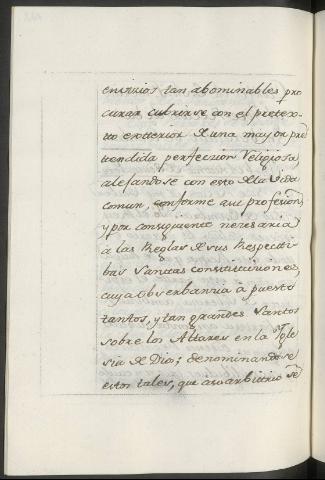 tan abominables pro
curan cubrirse con el pretex-
to exterior de una mayor pre
tendida perfeccion religiosa
alejandose con esto de la vida
comun, conforme a su profesion,
y por consiguiente necesaria
a las Reglas de sus Respecti
bas Santas constituciones,
cuya observbanzia à puesto
tantos, y tan grandes Santos
sobre los Altares en la Igle
sia de Dio; denominandose
estos tales, que a su arbitrio se